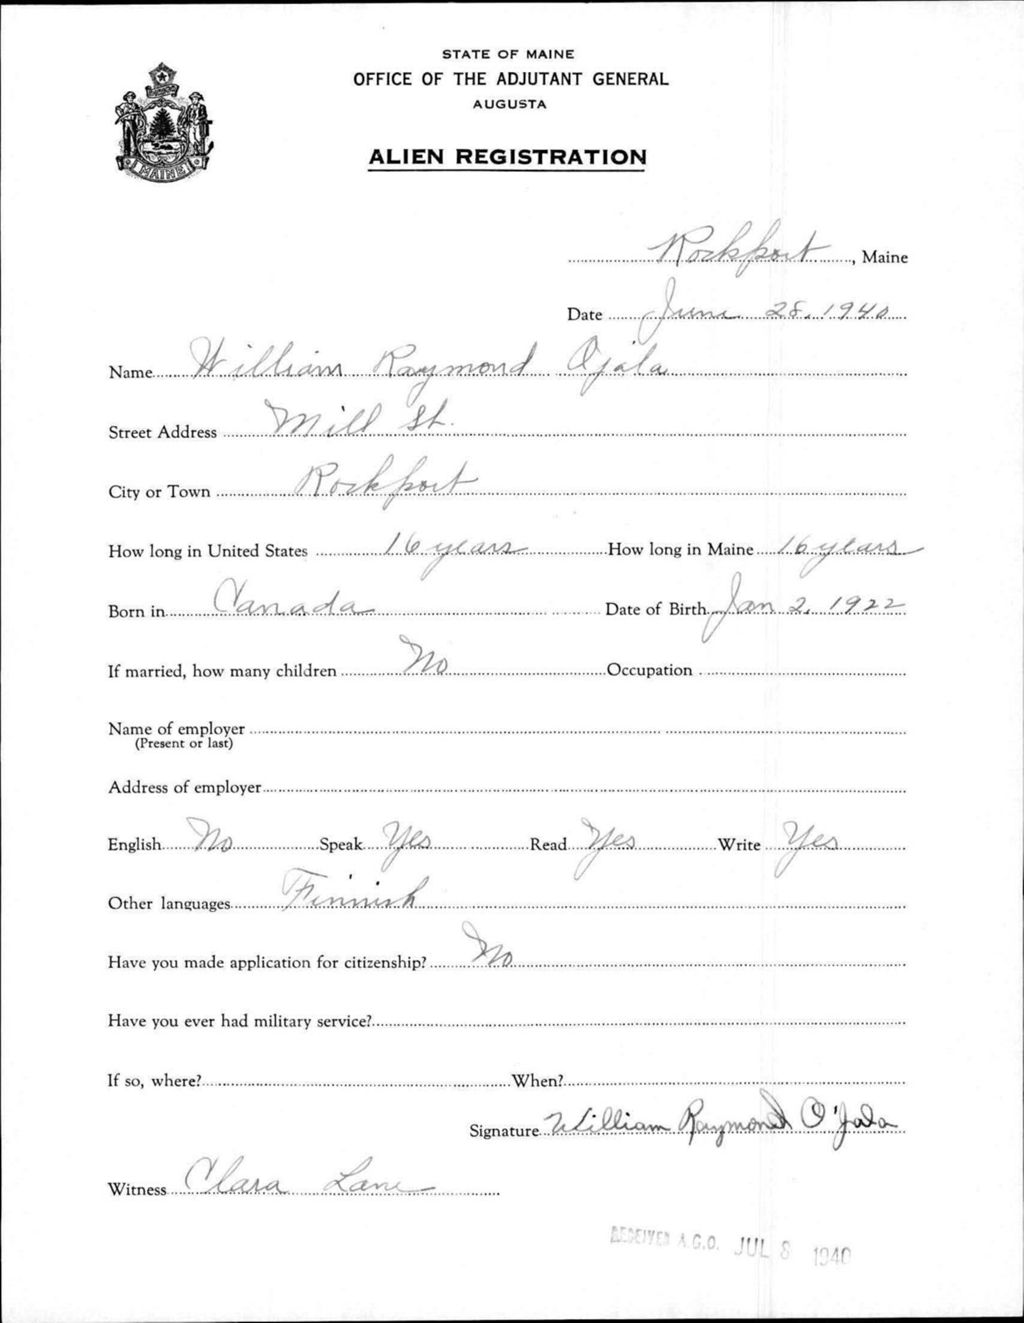 STATE OF MAINE
OFFICE OF THE ADJUTANT GENERAL
AUGUSTA
ALIEN REGISTRATION
MAINE
Rockport, Maine
Date June 28, 1940
Name William Raymond Ojala
Street Address Mill St.
City or Town Rockport
How long in United States 16 years How long in Maine 16 years
Born in Canada Date of Birth Jan 2, 1922
If married, how many children No Occupation
Name of employer
(Present or last)
Address of employer
English No Speak Yes Read Yes Write Yes
Other languages Finnish
Have you made application for citizenship? No
Have you ever had military service?
If so, where? When?
Signature William Raymond O'Jala
Witness Clara Lane
RECEIVED A.G.O. JUL 8 1940